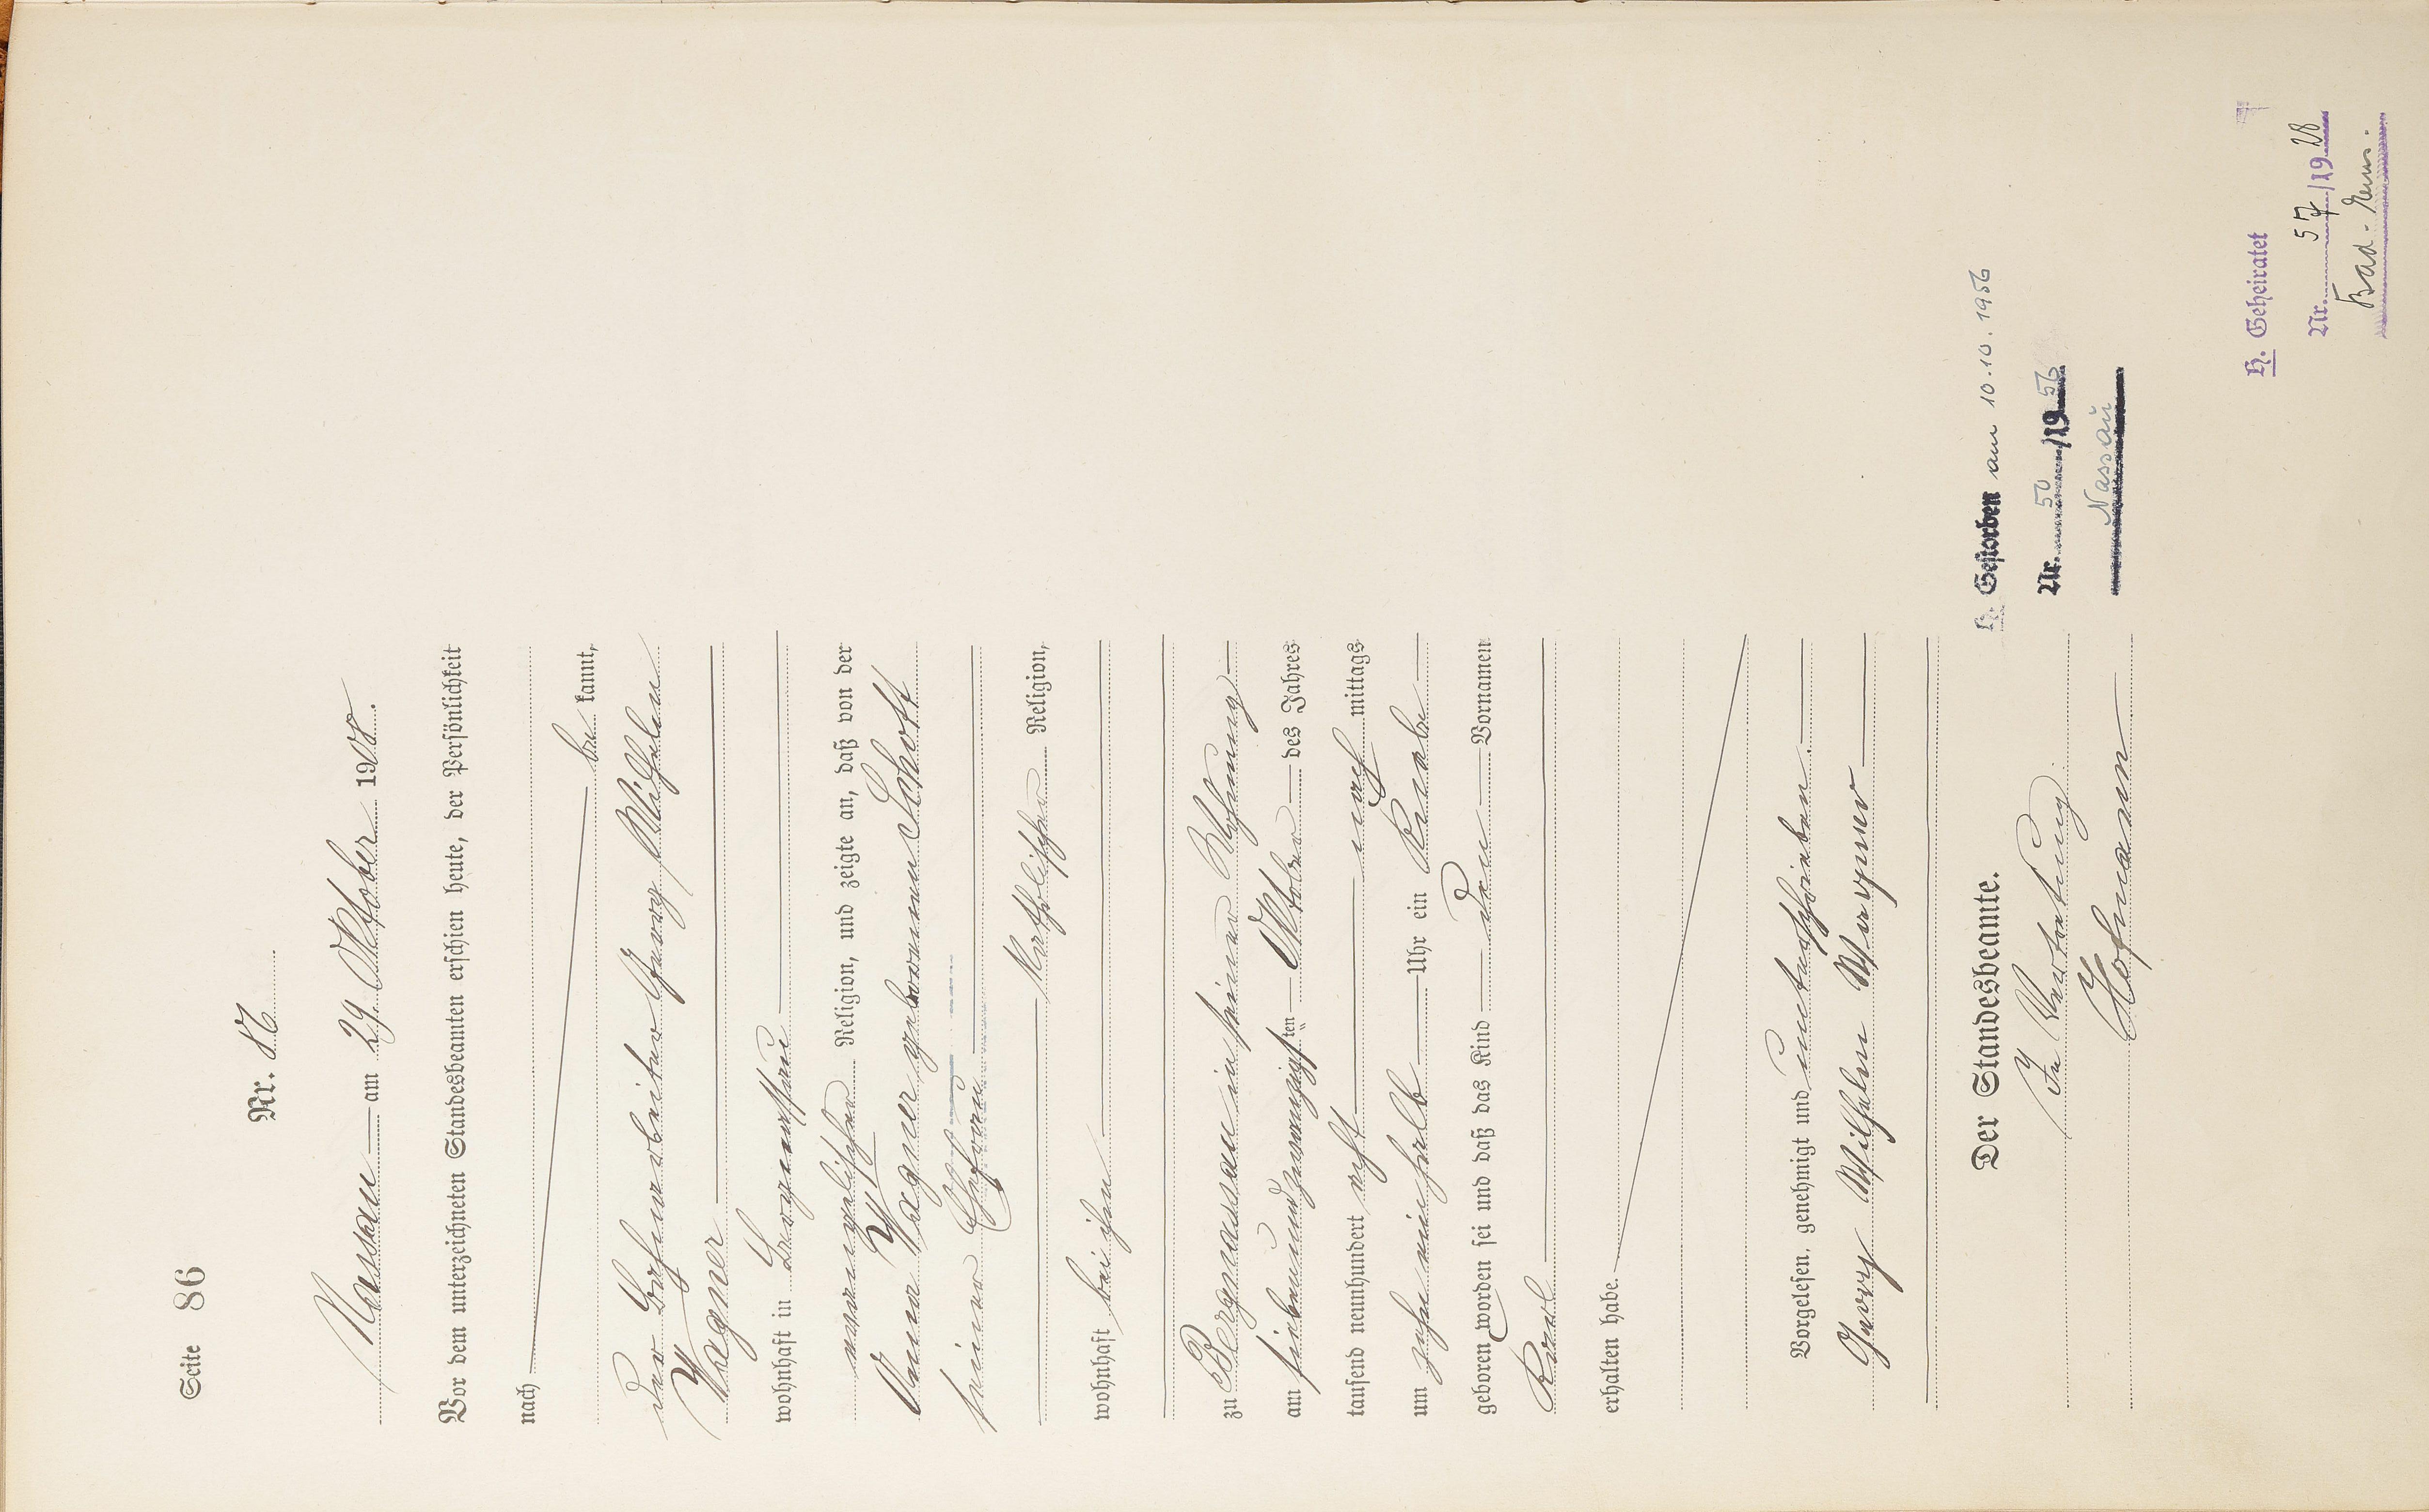 Seite 86
Nr. 86
Nassau am 29. Oktober 1908.
Vor dem unterzeichneten Standesbeamten erschien heute, der Persönlichkeit
nach
be kannt,
der Bahnarbeiter Georg Wilhelm
Wagner
wohnhaft in Bergnassau
evangelischer Religion, und zeigte an, daß von der
Anna Wagner geborenen Schott
seiner Ehefrau
katholischer Religion,
wohnhaft bei ihm
zu Bergnassau in seiner Wohnung
am siebenundzwanzigsten Oktober des Jahres
tausend neunhundert acht nach mittags
um zehn einhalb Uhr ein Knabe
geboren worden sei und daß das Kind den Vornamen
Karl
erhalten habe.
Vorgelesen, genehmigt und unterschrieben.
Georg Wilhelm Wagner
Der Standesbeamte.
In Vertretung.
Hofmann
H. Gestorben am 10.10.1956
Nr. 50/1956
Nassau
H. Geheiratet
Nr. 57/1928
Bad-Ems.